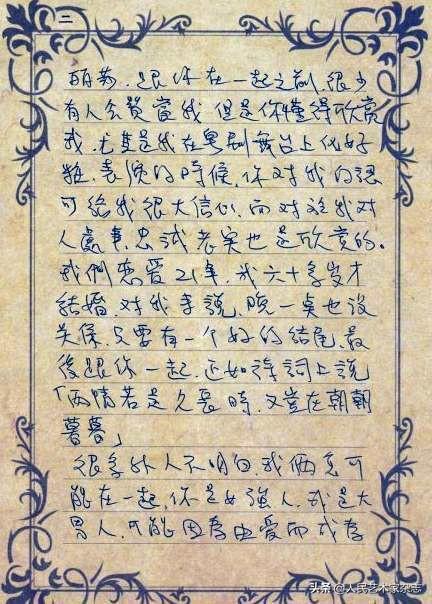 二
丽莎.跟你在一起之前.很少
有人会赞賞我.但是你懂得欣赏
我.尤其是我在粤剧舞台上做好
表演的時候.你对我的認
可給我很大信心.而对於我对
人處事.忠诚老实也是欣赏的。
我們恋爱21年.我六十多岁才
結婚.对我来說.晚一点也没
关係.只要有一个好的結尾.最
後跟你一起.正如詩詞上說
「两情若是久長時.又豈在朝朝
暮暮」
很多外人不明白我俩怎可
能在一起.你是女強人.我是大
男人.可能因
头条 @人民艺术家杂志